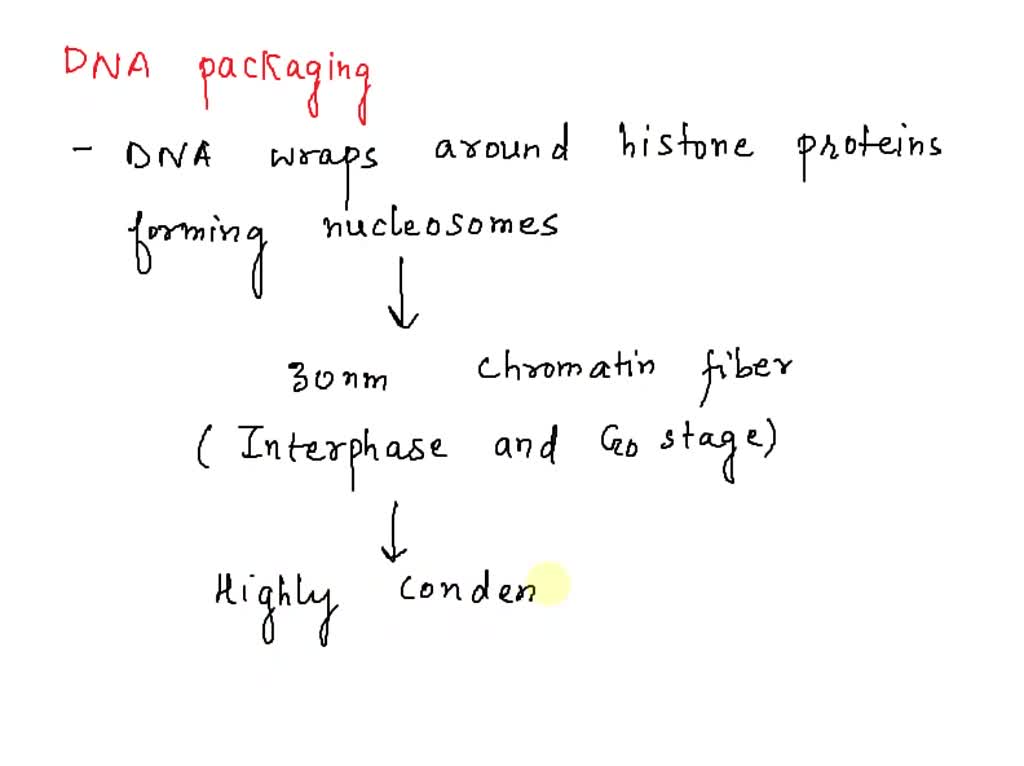 DNA packaging
- DNA wraps around histone proteins
forming nucleosomes
30nm chromatin fiber
(Interphase and G0 stage)
Highly conden